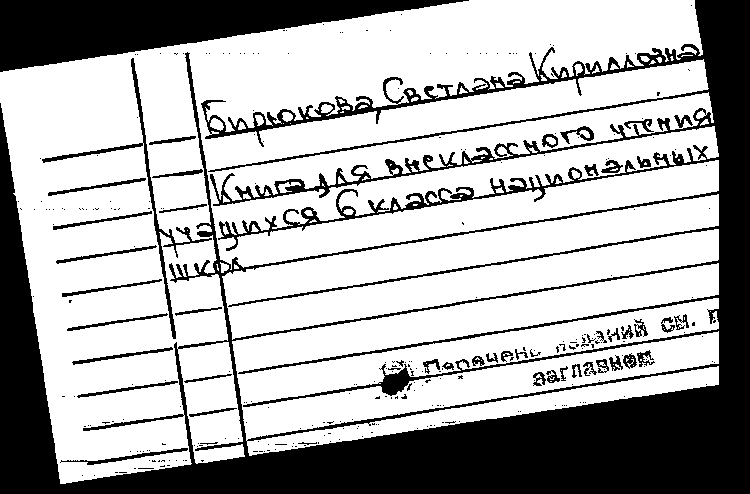 Бирюкова, Светлана Кирилловна
Книга для внеклассного чтения
учащихся 6 класса национальных
школ.
Перечень изданий см.
заглавием